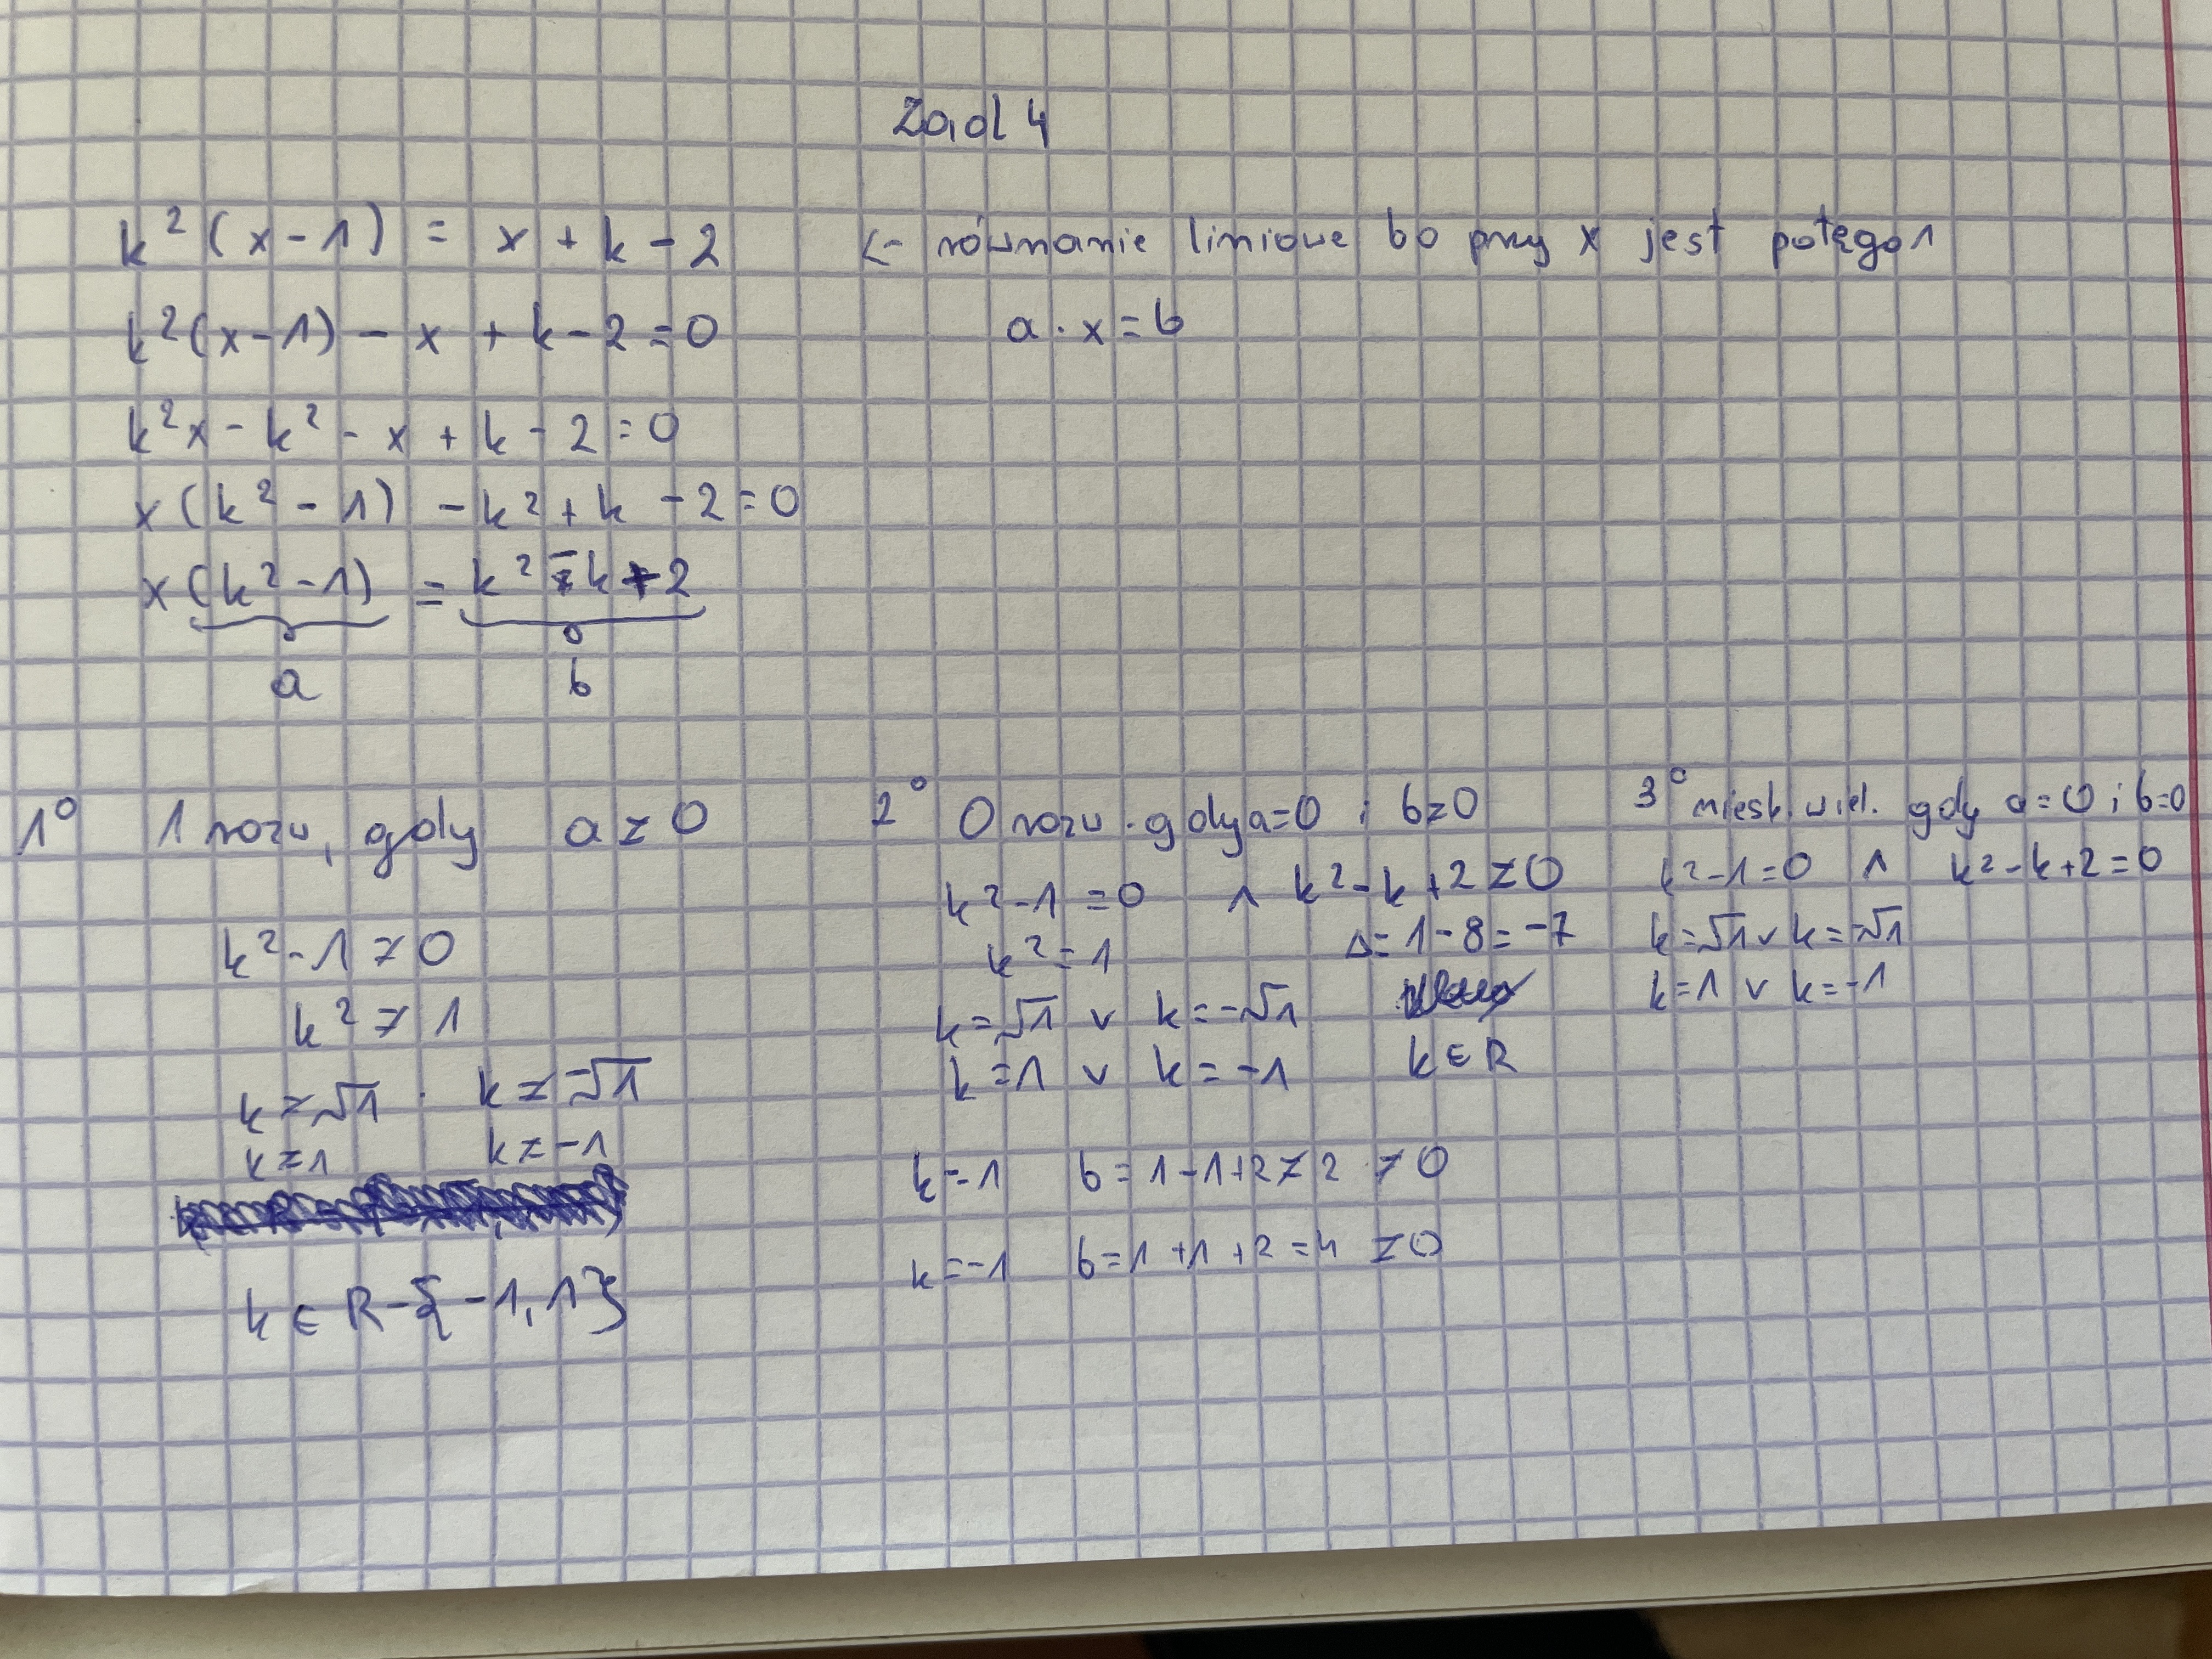 Zad 4
k²(x-1) = x + k - 2 <- równanie liniowe bo przy x jest potęga 1
k²(x-1) - x + k - 2 = 0 a · x = b
k²x - k² - x + k - 2 = 0
x(k² - 1) - k² + k - 2 = 0
x(k² - 1) = k² - k + 2
a b
1° 1 rozw, gdy a ≠ 0
k² - 1 ≠ 0
k² ≠ 1
k ≠ √1 . k ≠ -√1
k ≠ 1 k ≠ -1
k ∈ R - {-1, 1}
2° 0 rozw. gdy a = 0 i b ≠ 0
k² - 1 = 0 ∧ k² - k + 2 ≠ 0
k² = 1 Δ = 1 - 8 = -7
k = √1 ∨ k = -√1
k = 1 ∨ k = -1 k ∈ R
k = 1 b = 1 - 1 + 2 ≠ 2 ≠ 0
k = -1 b = 1 + 1 + 2 = 4 ≠ 0
3° niesk. wiel. gdy a = 0 i b = 0
k² - 1 = 0 ∧ k² - k + 2 = 0
k = √1 ∨ k = -√1
k = 1 ∨ k = -1